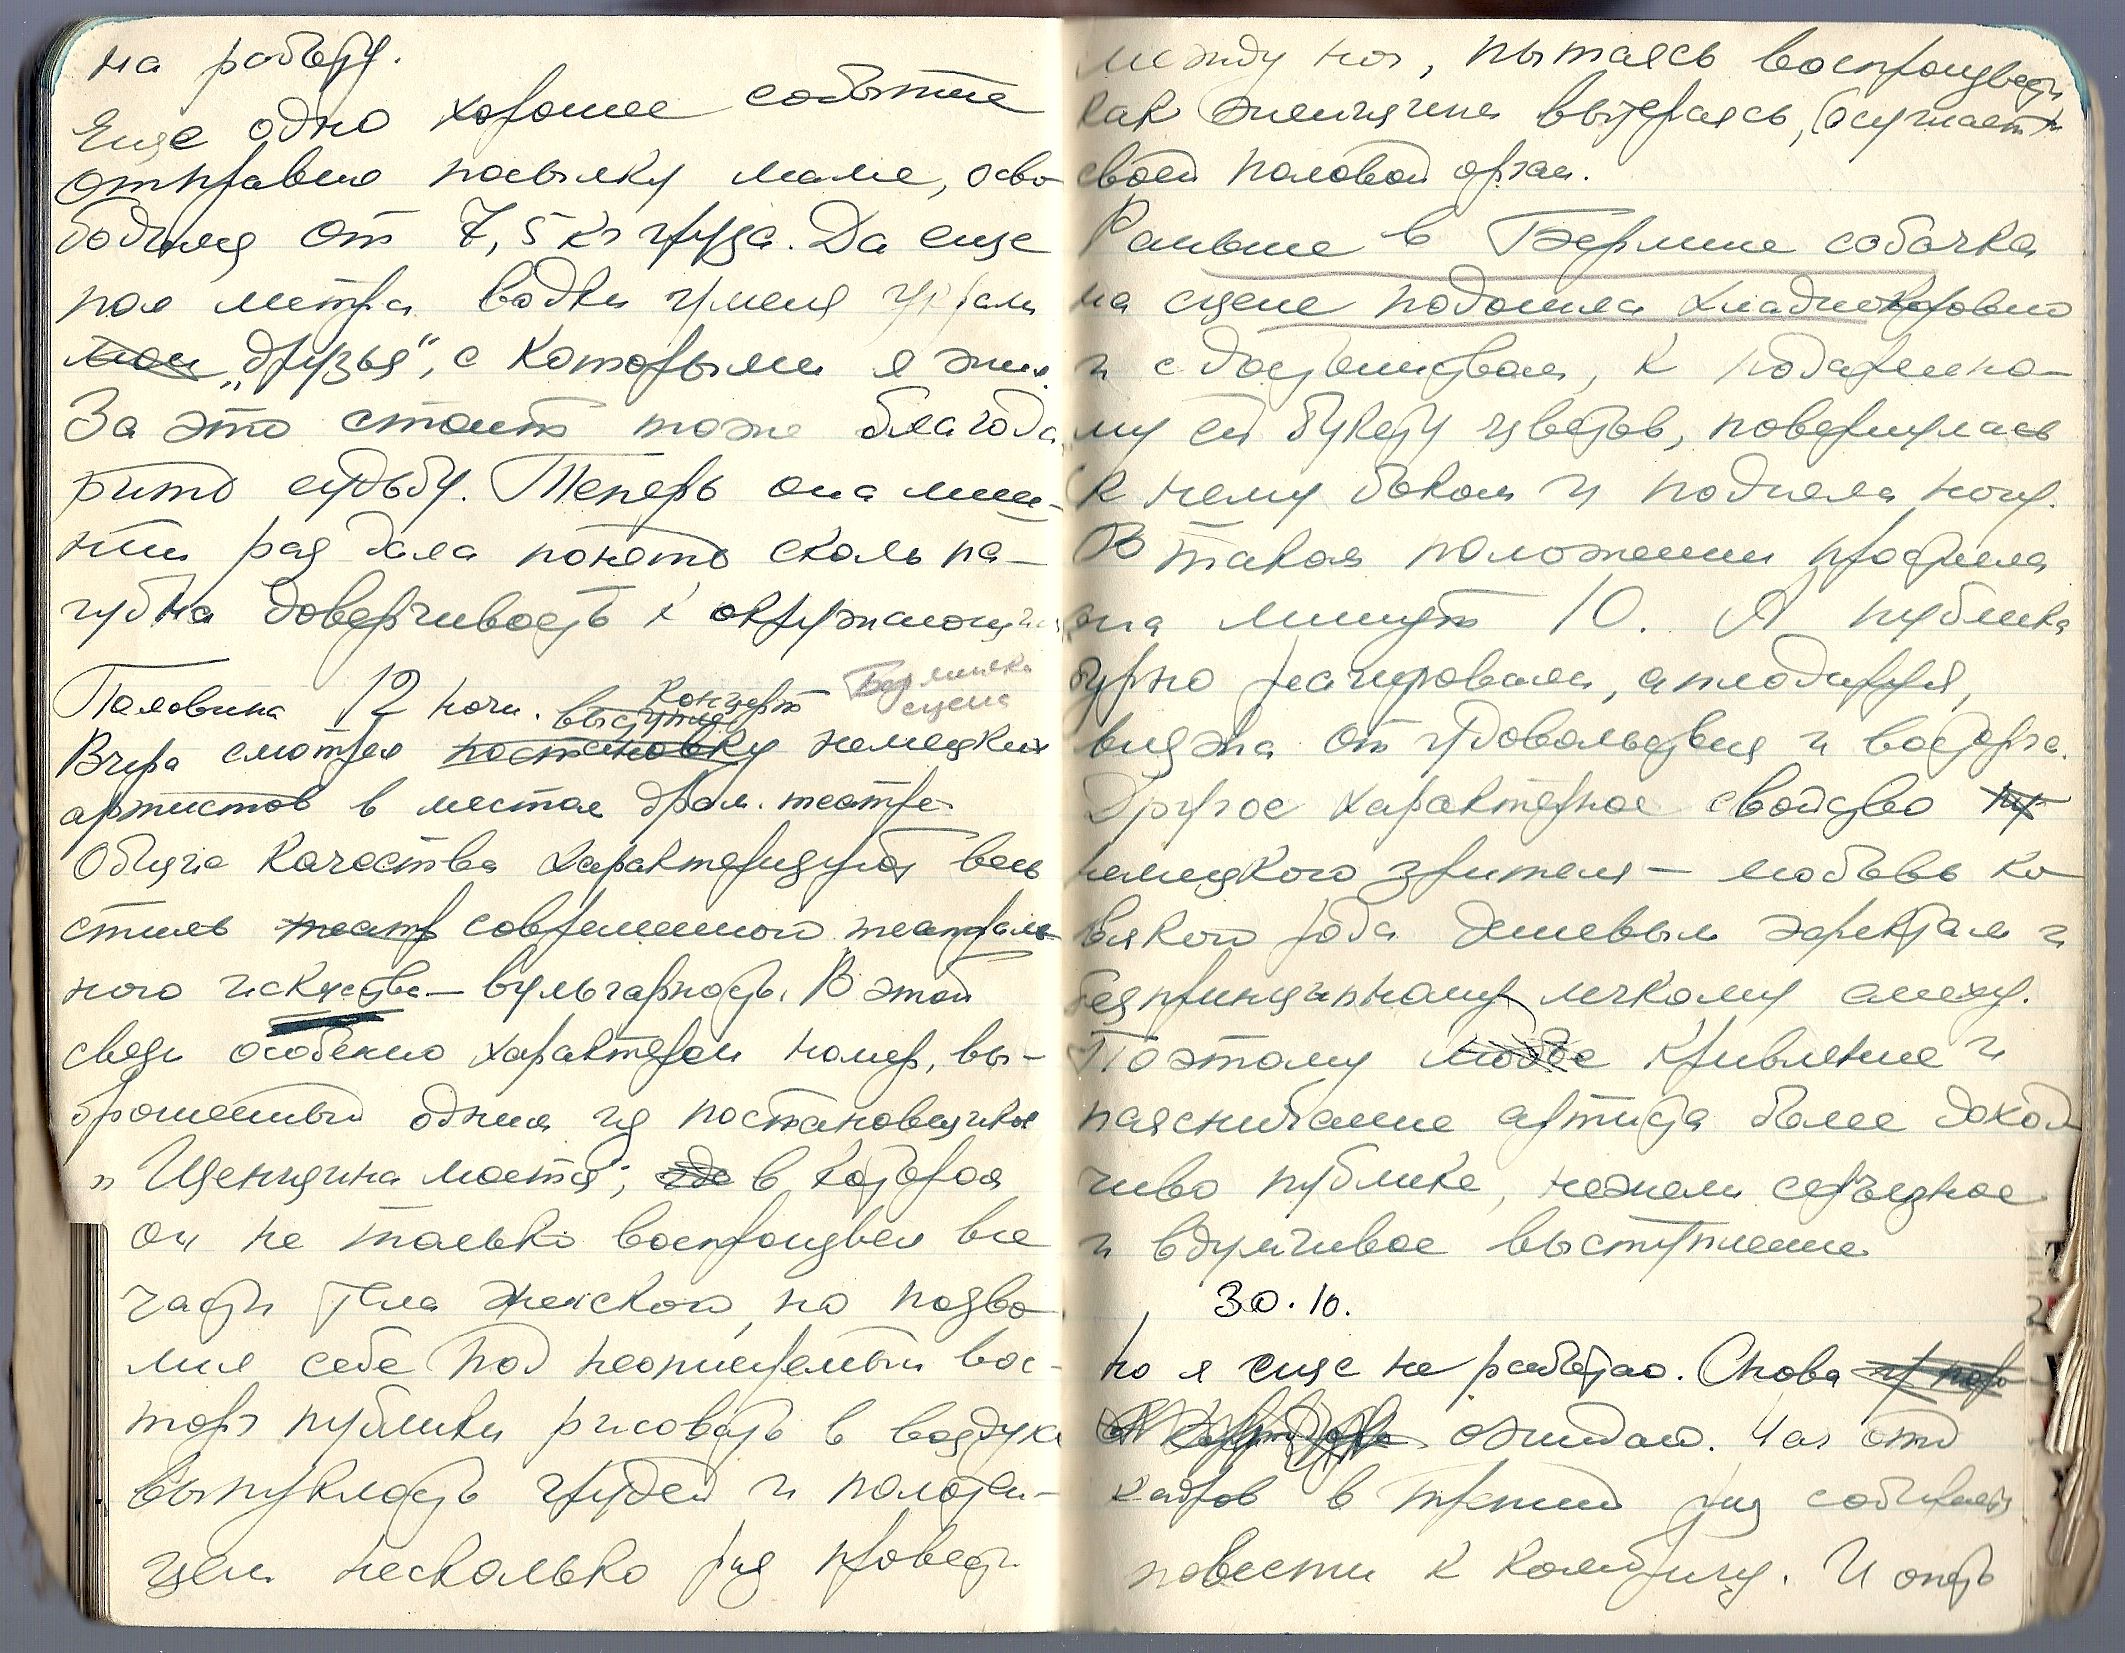 на работу.
Еще одно хорошее событие
отправил посылку маме, осво
бодился от 7,5 кг груза. Да еще
пол литра водки у меня украли
мои „друзья“, с которыми я жил.
За это стоит тоже благода
рить судьбу. Теперь она лиш-
ний раз дала понять сколь па-
губна доверчивость к окружающим
Половина 12 ночи.
Берлинка
сцена
концерт
выступле
Вчера смотрел постановку немецких
артистов в местном драм. театре
Общие качества характеризуют весь
стиль театр современного театраль
ного искуства — вульгарность. В этой
связи особенно характерен номер, вы-
брошенный одним из постановщиков
„Женщина моется“, где в котором
он не только воспроизвел все
части тела женского, но позво
лил себе под неописуемый вос-
торг публики рисовать в воздухе
выпуклость грудей и полотен-
цем несколько раз провести
между ног, пытаясь воспроизвести
как женщина вытираясь, осушает
свой половой орган.
Раньше в Берлине собачка
на сцене подошла хладнокровно
и с достоинством, к подаренно-
му ей букету цветов, повернулась
к нему боком и подняла ногу.
В таком положении простояла
она минут 10. А публика
бурно реагировала, аплодируя,
визжа от удовольствия и восторга.
Другое характерное свойство
немецкого зрителя — любовь ко
всякого рода дешевым эффектам и
безпринципному легкому смеху.
Поэтому любое кривляние и
паясничание артиста более доход
чиво публике, нежели серъезное
и вдумчивое выступление
30.10.
Но я еще не работаю. Снова
ожидаю. Нач отд
кадров в третий раз собирается
повести к комдиву. И опять